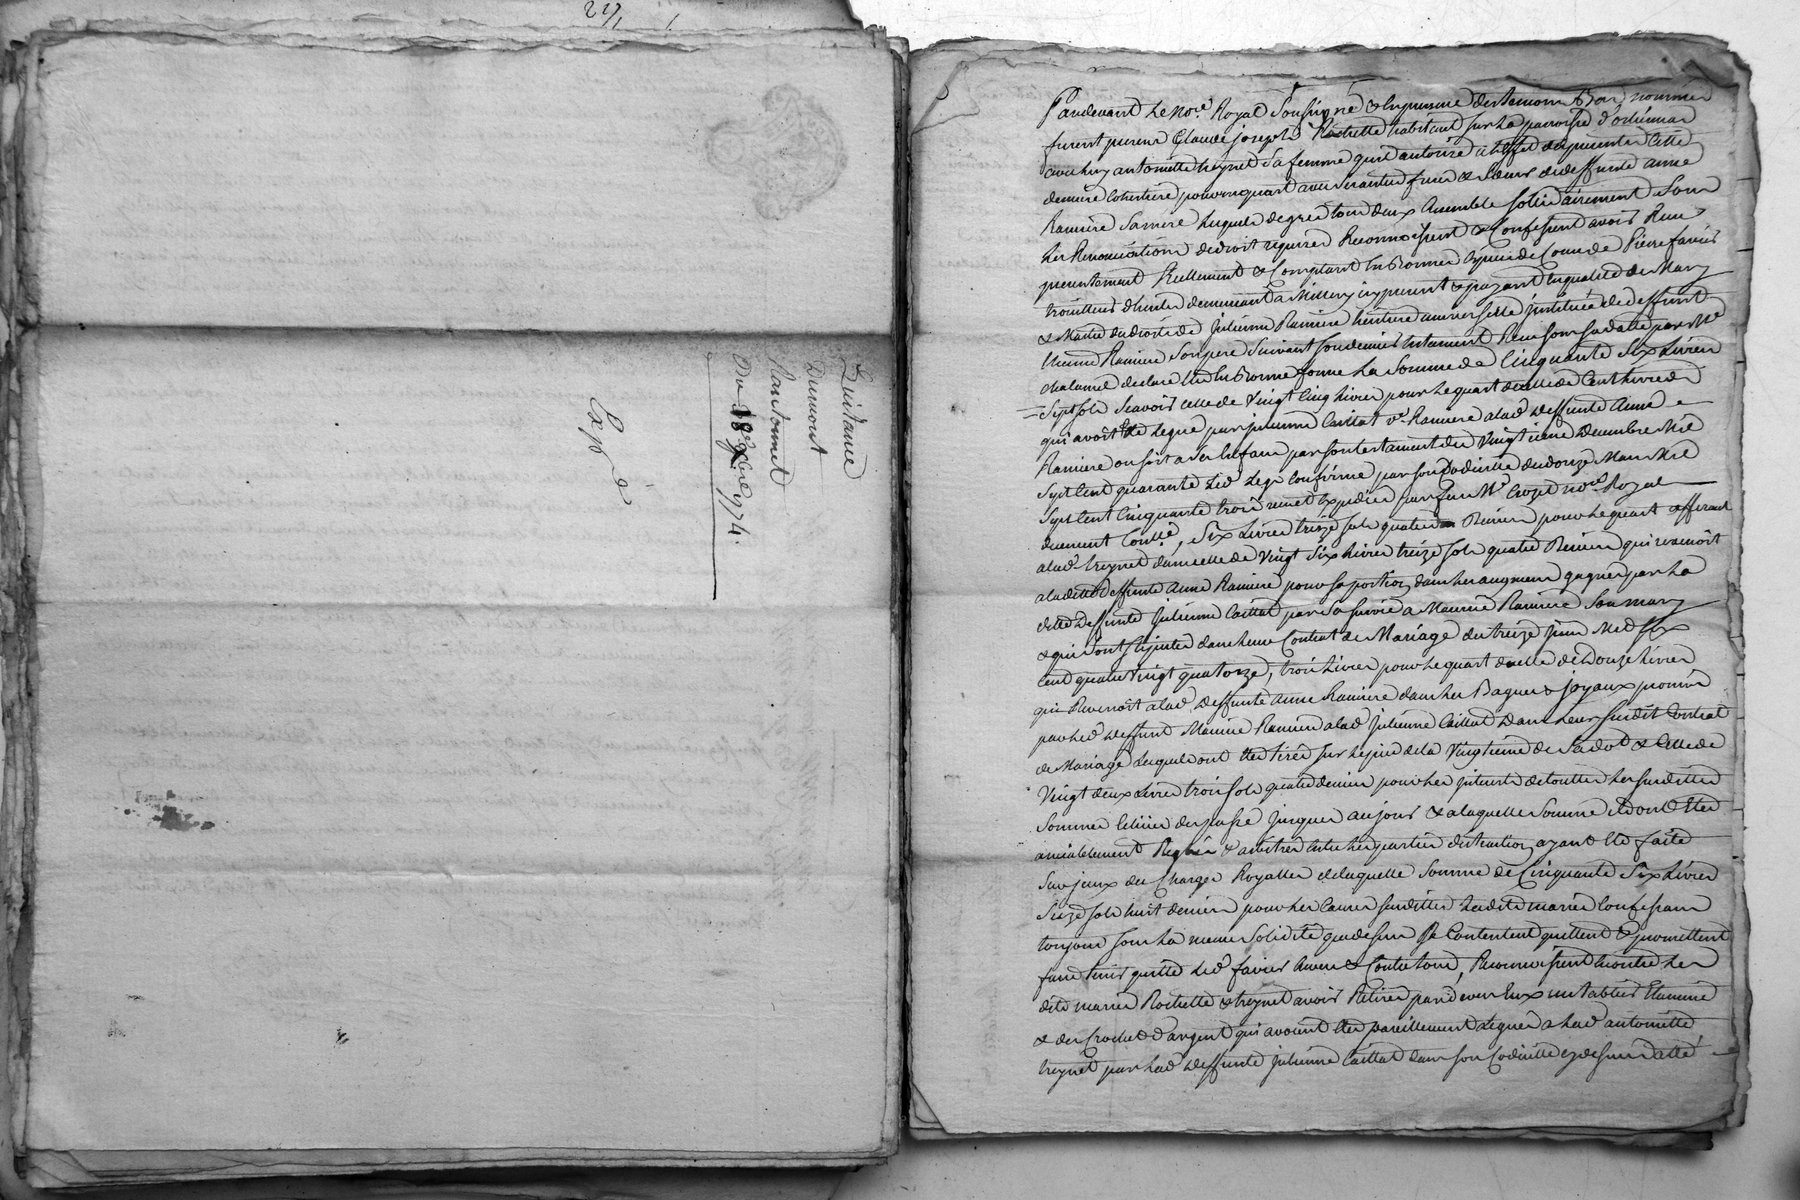 271
Quittance
Dumont
Plantonnet
Du 18 9bre 1774.
Expé
Pardevant Le No.re Royal Soussigné & En presence des temoins Bas nommes
furent presens Claude joseph Rochette habitant sur La parroisse d'orliennas
avec hory antoinette treynet Sa femme qu'il autorise a l'effet des presentes Cette
derniere Coheritiere pour un quart avec Ses autres freres & Sœurs de deffunte anne
Raniere Sa mere Lesquels de gré tous deux Ensemble Sollidairement Sous
Les Renonciations de droit requises Reconnoissent & Confessent avoir Reçu
presentement Reellement & Comptant En Bonnes Espèces de Cours de Pierre favier
trouilleur d'huiles demeurant a Millery icy present & payant En qualité de Mary
& Maitre des droits de Julienne Raniere heritiere universelle instituée de deffunt
Raniere Son pere Suivant Son dernier testament Reçu Sous Sa datte par Me
Chalamel declaré En Bonne forme La Somme de Cinquante Six Livres
Sept Sols Scavoir Celle de Vingt Cinq Livres pour Le quart de Celle de Cent Livres
qui avoit Eté Legué par julienne Caillat ve Raniere a lad deffunte Anne
Raniere ou Soit a Ses Enfans par Son testament du Vingtieme Decembre Mil
Sept Cent quarante Led Legs Confirmé par Son Codicille du douze Mars Mil
Sept Cent Cinquante trois reçu et Expedié par feu Me Crozet no.re Royal
duement Contlé, Six Livres treize Sols quatre Deniers pour Le quart afferant
a lad treynet dans Celle de Vingt Six Livres treize Sols quatre Deniers qui revenoit
a laditte deffunte Anne Raniere pour Sa portion dans Les augments gagnés par La
ditte Deffunte Julienne Caillat par Sa Survie a Maurice Raniere Son mary
& qui Sont Stipulés dans Leur Contrat de Mariage du treize juin Mil Six
Cent quatre Vingt quatorze, trois Livres pour Le quart de Celle de Douze Livres
qui Revenoit a lad Deffunte Anne Raniere dans Les Bagues & joyaux promis
par Led deffunt Maurice Raniere a lad Julienne Caillat Dans Leur Susdit Contrat
de Mariage Lesquels ont Eté tirés Sur Le pied de La Vingtieme de Sa dot & Celle de
Vingt deux Livres trois Sols quatre deniers pour Les Interets de touttes Les Susdittes
Sommes Celuier du passé Jusques au jour & a laquelle Somme ils ont Eté
amiablement Reglés & arbitrés Entre Les parties distraction ayant Eté faite
Sur jeux des Charges Royalles de laquelle Somme de Cinquante Six Livres
Seize Sols huit deniers pour Les Causes Susdittes Lesdits mariés Confessans
toujours Sous La meme Solidité que dessus Se Contentent quittent & promettent
faire tenir quitte Led favier Envers & Contre tous, Reconnoissent En outre Les
dits mariés Rochette & treynet avoir Retiré par devers Eux un tablier Etamine
& des Crochet d'argent qui avoient Eté pareillement Legués a Lad antoinette
treynet par Lad Deffunte Julienne Caillat dans Son Codicille cy dessus datté